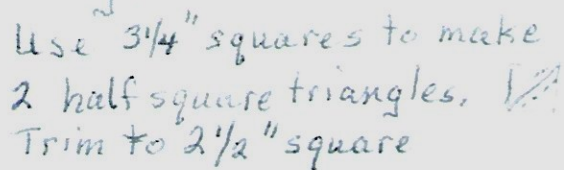 Use 3 1/4" squares to make
2 half square triangles.
Trim to 2 1/2" square